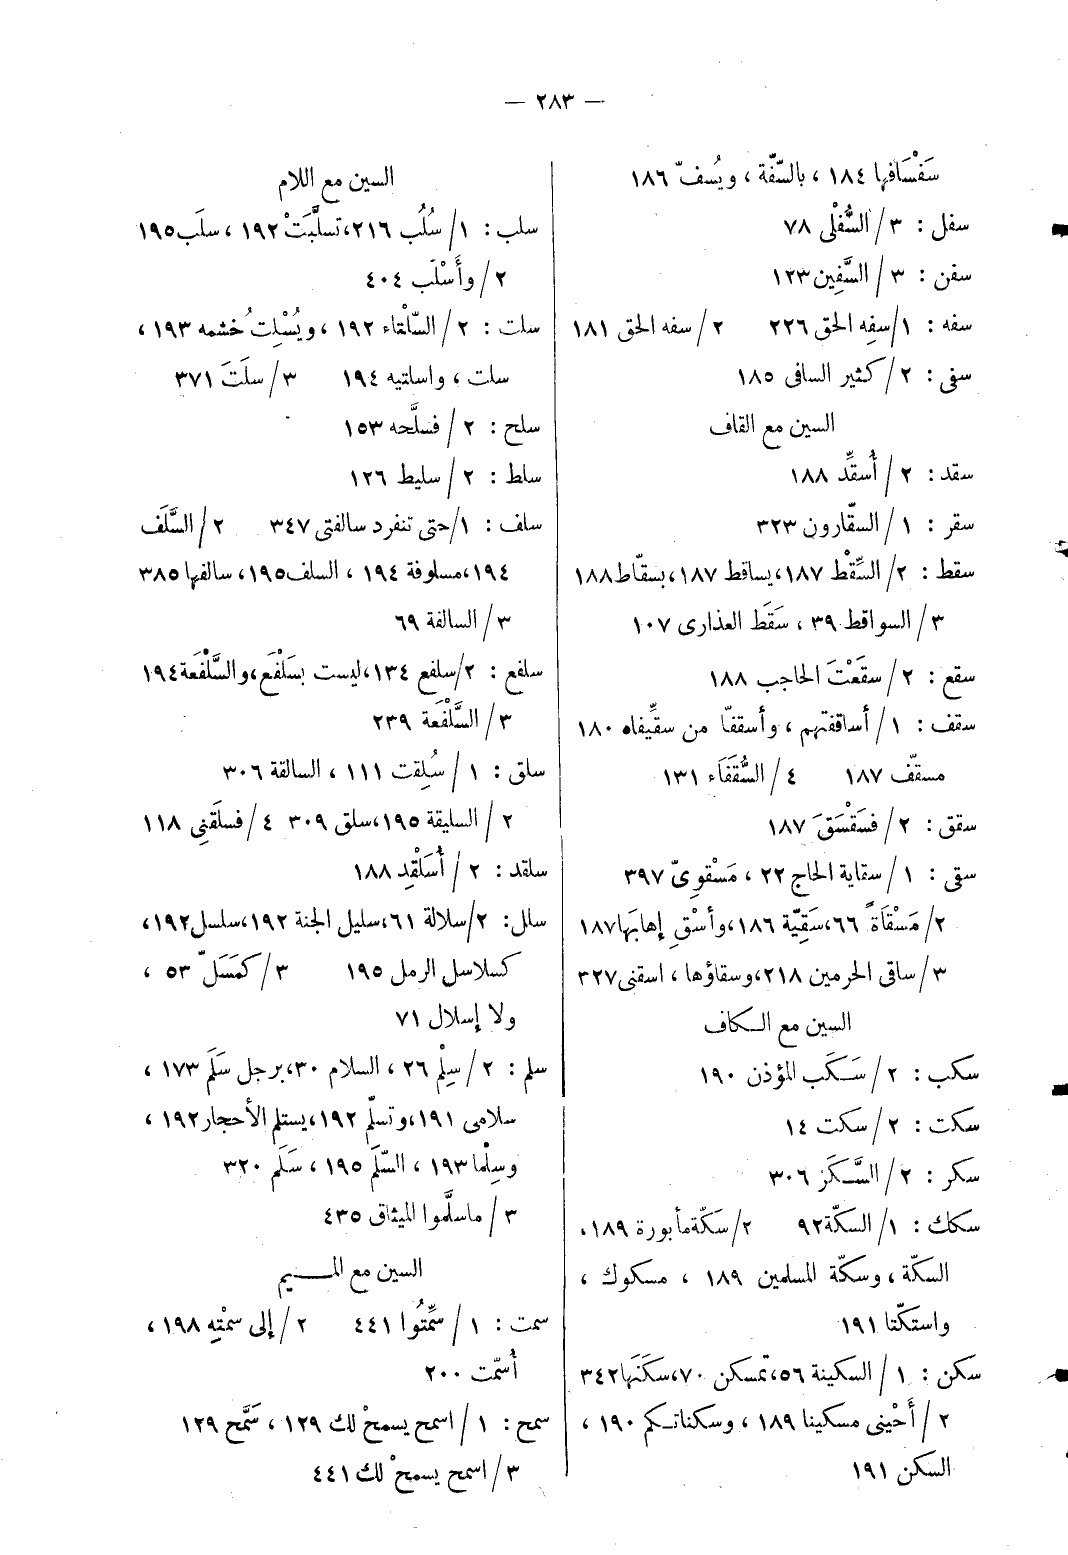 — ٢٨٣ —
سَفْسَافها ١٨٤ ، بالسّفّة ، ويُسفّ ١٨٦
سفل : ٣ / السُّفْلى ٧٨
سفن : ٣ / السَّفِين ١٢٣
سفه : ١ / سفِه الحق ٢٢٦ ٢ / سفه الحق ١٨١
سفى : ٢ / كثير السافى ١٨٥
السين مع القاف
سقد : ٢ / أُسقِّد ١٨٨
سقر : ١ / السقّارون ٣٢٣
سقط : ٢ / السِّقْط ١٨٧، يساقط ١٨٧، بسقّاط ١٨٨
٣ / السواقط ٣٩ ، سَقَط العذارى ١٠٧
سقع : ٢ / سقَعْتَ الحاجب ١٨٨
سقف : ١ / أساقفتهم ، وأسقفّا من سقِّيفاه ١٨٠
مسقّف ١٨٧ ٤ / السُّقَفَاء ١٣١
سقق : ٢ / فسَقْسَقَ ١٨٧
سقى : ١ / سقاية الحاج ٢٢ ، مَسْقوِىّ ٣٩٧
٢ / مَسْقَاةً ٦٦، سَقِيّة ١٨٦، وأسْقِ إهابَها ١٨٧
٣ / ساقى الحرمين ٢١٨، وسقاؤها ، اسقنى ٣٢٧
السين مع الكاف
سكب : ٢ / سَكَب المؤذن ١٩٠
سكت : ٢ / سكت ١٤
سكر : ٢ / السَّكَر ٣٠٦
سكك : ١ / السكّة ٩٢ ٢ / سكّة مأبورة ١٨٩،
السكّة ، وسكّة المسلمين ١٨٩ ، مسكوك ،
واستكّتا ١٩١
سكن : ١ / السكينة ٥٦، تمسكن ٧٠، سكَنَها ٣٤٢
٢ / أَحْينى مسكينا ١٨٩ ، وسكناتكم ١٩٠ ،
السكن ١٩١
السين مع اللام
سلب : ١ / سُلُب ٢١٦، تسلَّبَتْ ١٩٢ ، سلَب ١٩٥
٢ / وأَسْلَب ٤٠٤
سلت : ٢ / السّلْتاء ١٩٢ ، ويُسْلِتُ خشمه ١٩٣ ،
سلت ، واسلتيه ١٩٤ ٣ / سلَتَ ٣٧١
سلح : ٢ / فسلَّحه ١٥٣
سلط : ٢ / سليط ١٢٦
سلف : ١ / حتى تنفرد سالفتى ٣٤٧ ٢ / السَّلَف
١٩٤، مسلوفة ١٩٤ ، السلف ١٩٥، سالفها ٣٨٥
٣ / السالفة ٦٩
سلفع : ٢ / سلفع ١٣٤، ليست بسَلْفَع، والسَّلْفَعة ١٩٤
٣ / السَّلْفَعة ٢٣٩
سلق : ١ / سُلِقت ١١١ ، السالقة ٣٠٦
٢ / السليقة ١٩٥، سلق ٣٠٩ ٤ / فسلَقَنِى ١١٨
سلقد : ٢ / أُسَلْقِد ١٨٨
سلل : ٢ / سلالة ٦١، سليل الجنة ١٩٢، سلسل ١٩٢،
كسلاسل الرمل ١٩٥ ٣ / كمَسَلّ ٥٣ ،
ولا إسلال ٧١
سلم : ٢ / سِلْم ٢٦ ، السلام ٣٠، برجل سَلَم ١٧٣ ،
سلامى ١٩١، وتسلّم ١٩٢، يستلم الأحجار ١٩٢ ،
وسِلْما ١٩٣ ، السّلَم ١٩٥ ، سَلَم ٣٢٠
٣ / ماسلَّموا الميثاق ٤٣٥
السين مع الميم
سمت : ١ / سمِّتُوا ٤٤١ ٢ / إلى سمْتِه ١٩٨ ،
أُسمّت ٢٠٠
سمح : ١ / اسمح يسمحْ لك ١٢٩ ، سَمَّح ١٢٩
٣ / اسمح يسمحْ لك ٤٤١